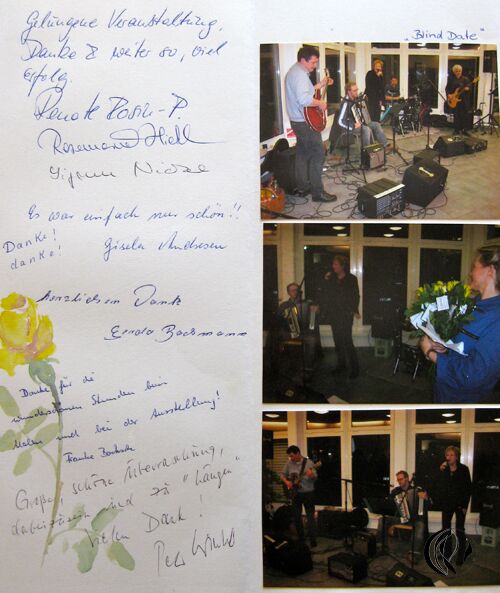 Gelungene Veranstaltung,
Danke & weiter so, viel
Erfolg.
Renate
Rosemarie
Es war einfach nur schön!!
Danke!
danke!
Gisela Andresen
herzlichen Dank
Gerda Bachmann
Danke für die
wunderschönen Stunden beim
Malen und bei der Ausstellung!
Frauke
Große, schöne Überraschung,
dabeizusein und zu "hängen"
Vielen Dank!
Peter
"Blind Date"